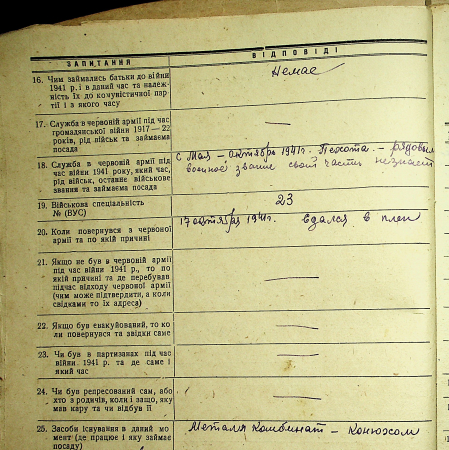 ЗАПИТАННЯ
ВІДПОВІДІ
16. Чим займались батьки до війни
1941 р. і в даний час та належ-
ність їх до комуністичної пар
тії і з якого часу
Немає
17. Служба в червоній армії під час
громадянської війни 1917—22
років, рід військ та займаема
посада
—
18. Служба в червоній армії під
час війни 1941 року, який час,
рід військ, останнє військове
званням та займаєма посада
С Мая – октябрь 1941г. Пехота. – рядовым
военное звание своей части не знает
19. Військова спеціальність
№ (ВУС)
23
20. Коли повернувся з червоної
армії та по якій причині
17 октября 1941г. вдался в плен
21. Якщо не був в червоній армії
під час війни 1941 р., то по
якій причині та де перебував
підчас відходу червоної армії
(чим може підтвердити, а коли
свідками то їх адреса)
—
22. Якщо був евакуйований, то ко
ли повернувся та звідки саме
—
23. Чи був в партизанах під час
війни 1941 р. та де саме і
який час
—
24. Чи був репресований сам, або
хто з родичів, коли і защо, яку
мав кару та чи відбув її
—
25. Засоби існування в даний мо
мент (де працює і яку займає
посаду)
Металл Комбинат – Конюхом